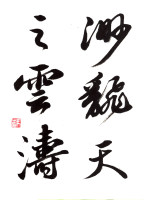 渺天
之雲濤